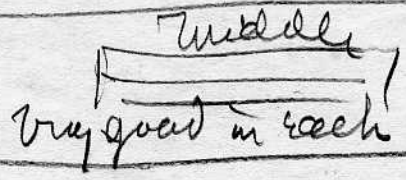 Middle
Very good in each